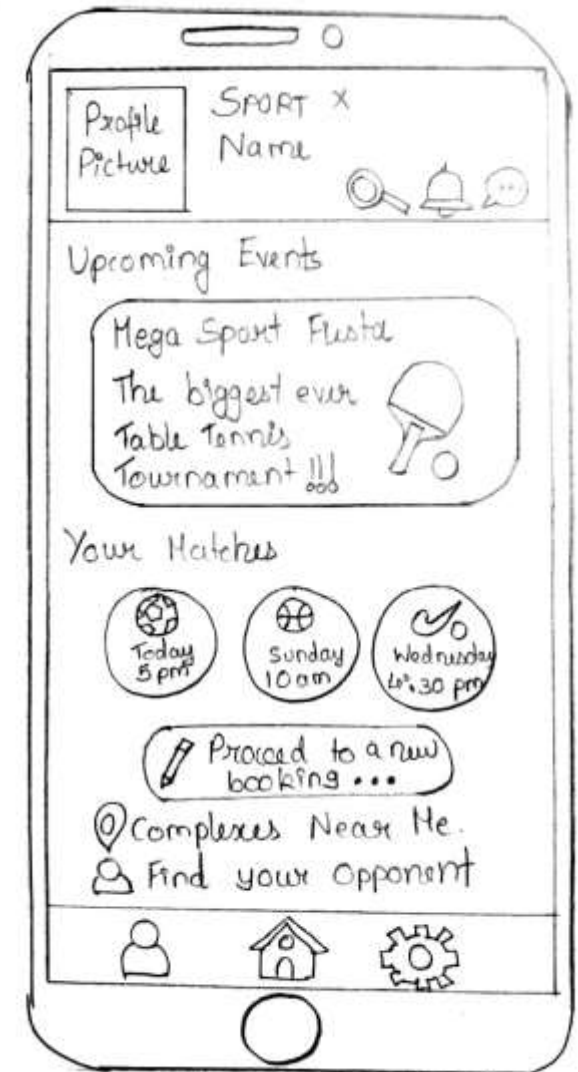 Profile
Picture
SPORT X
Name
Upcoming Events
Mega Sport Fiesta
The biggest ever
Table Tennis
Tournament !!!
Your Matches
Today
5 pm
Sunday
10 am
Wednesday
30 pm
Proceed to a new
booking ...
Complexes Near Me.
Find your Opponent